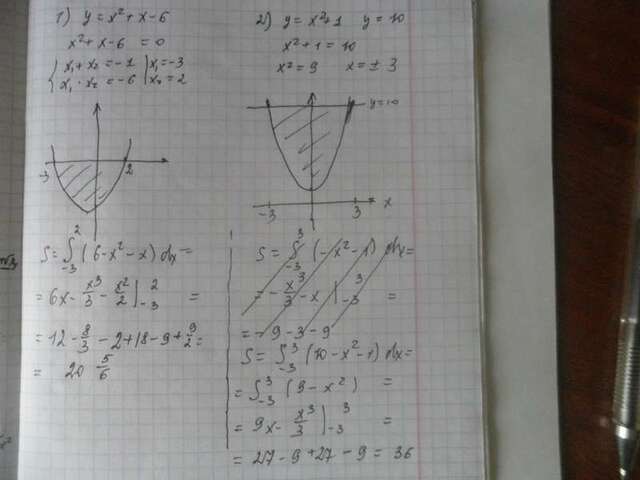 1) y = x² + x - 6
x² + x - 6 = 0
{ x₁ + x₂ = -1 | x₁ = -3
x₁ · x₂ = -6 | x₂ = 2
-3 2
S = ∫₋₃² (6 - x² - x) dx =
= 6x - x³/3 - x²/2 |₋₃² =
= 12 - 8/3 - 2 + 18 - 9 + 9/2 =
= 20 5/6
2) y = x² + 1 y = 10
x² + 1 = 10
x² = 9 x = ± 3
y = 10
-3 3 x
S = ∫₋₃³ (-x² - 1) dx =
= -x³/3 - x |₋₃³ =
= -9 - 3 - 9
S = ∫₋₃³ (10 - x² - 1) dx =
= ∫₋₃³ (9 - x²) =
= 9x - x³/3 |₋₃³ =
= 27 - 9 + 27 - 9 = 36